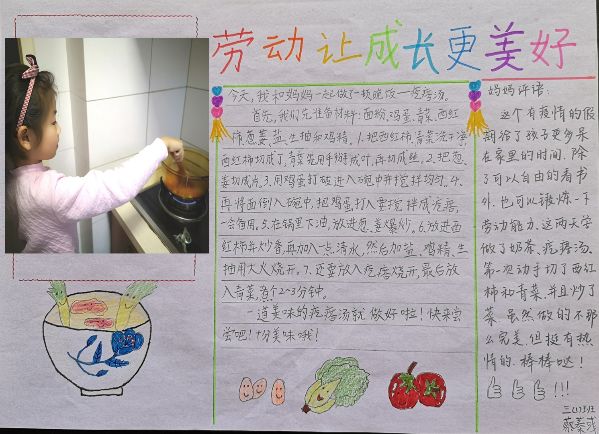 劳动让成长更美好
今天,我和妈妈一起做了一顿晚饭—疙瘩汤。
首先,我们先准备材料:面粉、鸡蛋、青菜、西红
柿、葱姜、盐、生抽和鸡精。1.把西红柿、青菜洗干净
西红柿切成丁,青菜先用手掰成叶,再切成丝。2.把葱、
姜切成片。3.用鸡蛋打破进入碗中并搅拌均匀。4.
再将面倒入碗中,把鸡蛋打入里搅拌成疙瘩,
一会备用。5.在锅里下油,放进葱、姜爆炒。6.放进西
红柿翻炒香,再加入一点清水,然后加盐、鸡精、生
抽用大火烧开。7.还要放入疙瘩烧开,最后放
入青菜,煮个2~3分钟。
一道美味的疙瘩汤就做好啦!快来尝
尝吧!十分美味哦!
妈妈评语:
这个有疫情的假
期给了孩子更多呆
在家里的时间,除
了可以自由的看书
外,也可以锻炼一下
劳动能力,这两天学
做了奶茶、疙瘩汤。
第一次动手切了西红
柿和青菜,并且炒了
菜,虽然做的不那
么完美,但挺有热
情的,棒棒哒!
!!!
三(1)班
蔡蓁